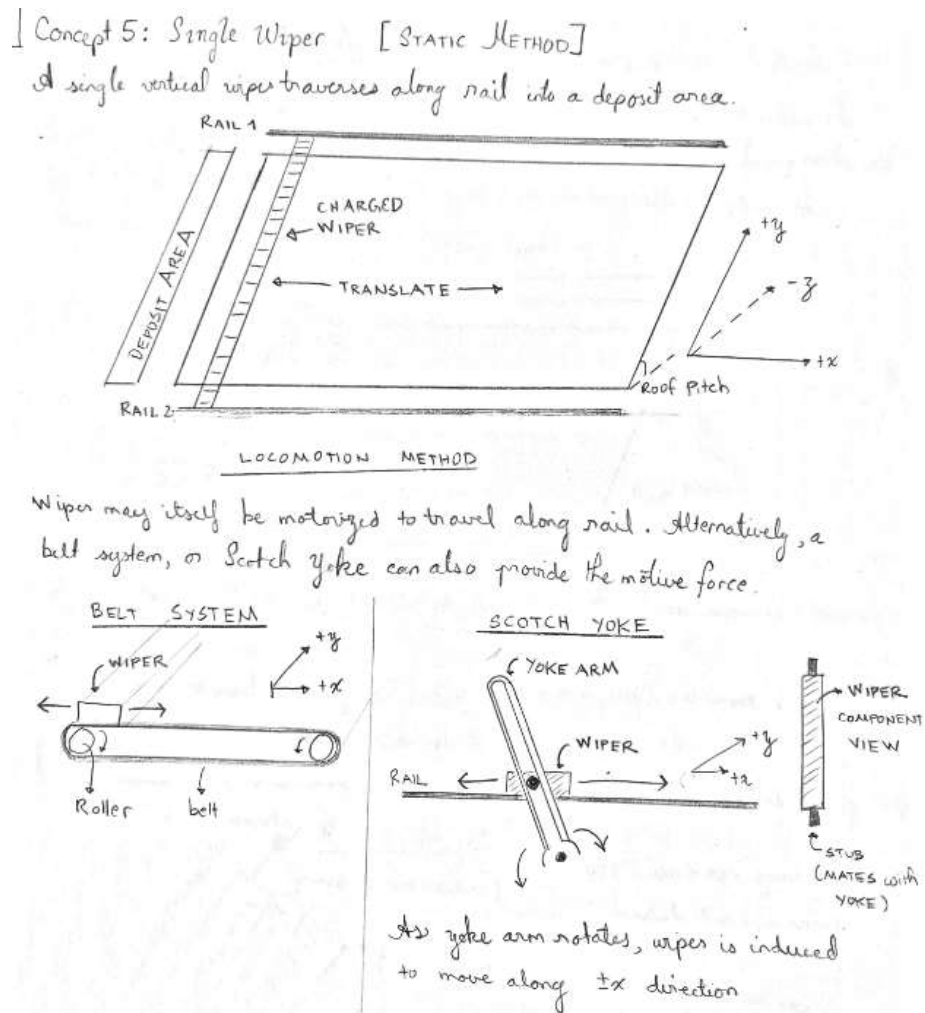 Concept 5: Single Wiper [STATIC METHOD]
A single vertical wiper traverses along rail into a deposit area.
RAIL 1
CHARGED
WIPER
TRANSLATE
DEPOSIT AREA
+y
-z
+x
Roof Pitch
RAIL 2
LOCOMOTION METHOD
Wiper may itself be motorized to travel along rail. Alternatively, a
belt system, or Scotch Yoke can also provide the motive force.
BELT SYSTEM
WIPER
+y
+x
Roller
belt
SCOTCH YOKE
YOKE ARM
WIPER
RAIL
+y
+x
WIPER
COMPONENT
VIEW
STUB
(MATES with
YOKE)
As yoke arm rotates, wiper is induced
to move along ±x direction